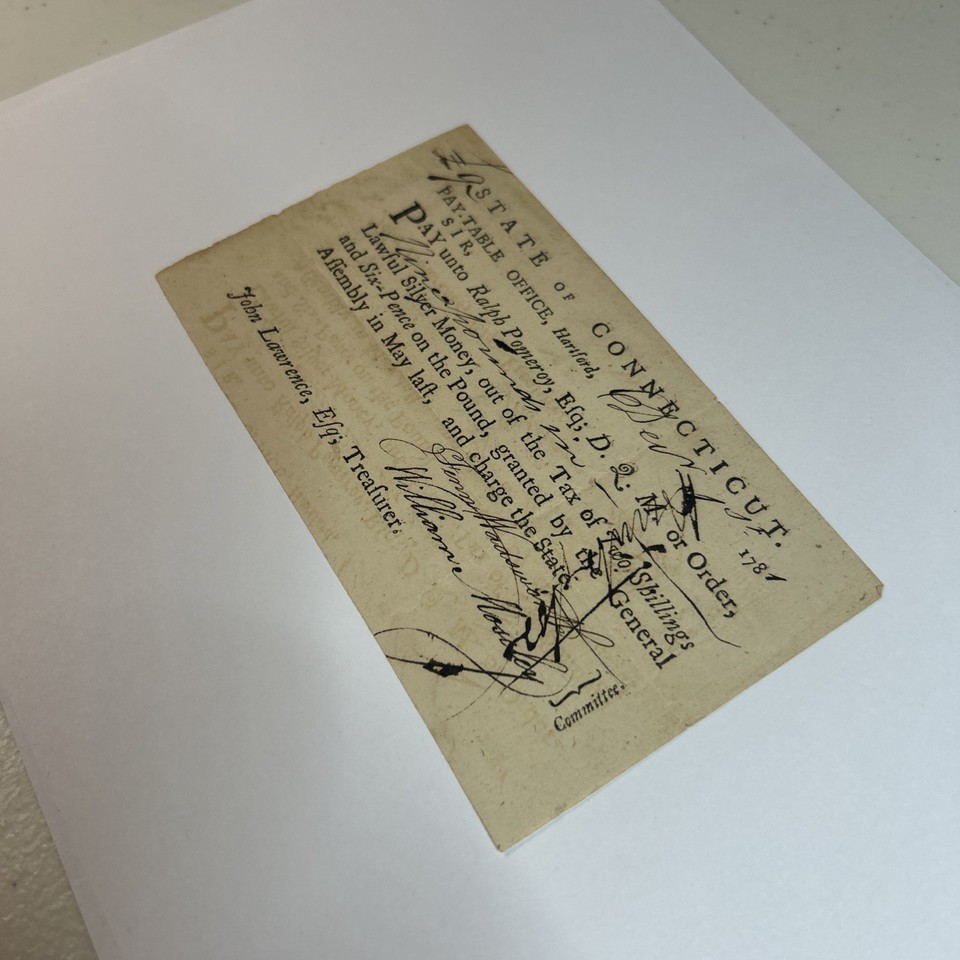 STATE OF CONNECTICUT.
PAY-TABLE OFFICE, Hartford, 1781
SIR,
PAY unto Ralph Pomeroy, Eſq; D. Q. M. or Order,
Nine pounds in
Lawful Silver Money, out of the Tax of Two Shillings
and Six-Pence on the Pound, granted by the General
Aſſembly in May laſt, and charge the State.
William Moseley } Committee.
John Lawrence, Eſq; Treaſurer.